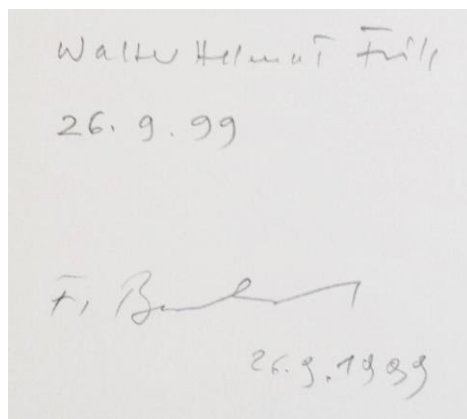 Walter Helmut Fritz
26. 9. 99
F.
26.9.1999